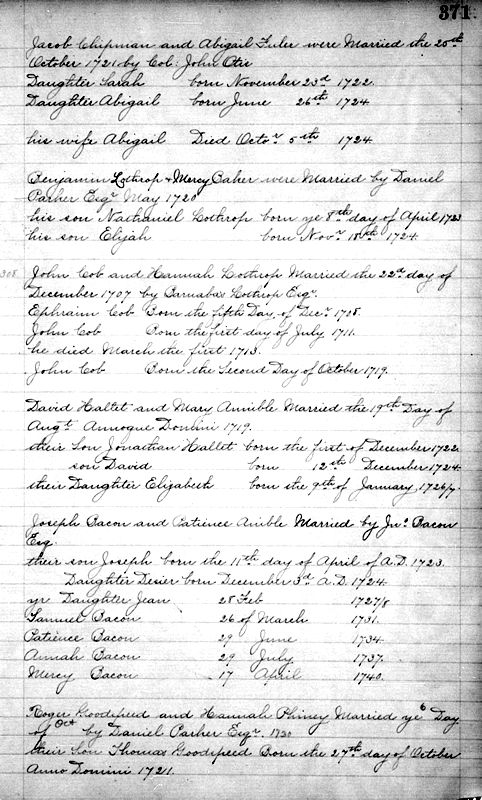 371
Jacob Chipman and Abigail Fuler were Married the 25th
October 1721 by Col: John Otis
Daughter Sarah born November 23d 1722.
Daughter Abigail born June 26th 1724.
his wife Abigail Died Octor 5th 1724
Benjamin Lothrop & Mercy Baker were Married by Daniel
Parker Esqr May 1720
his son Nathaniel Lothrop born ye 8th day of April 1723
his son Elijah born Novr 18th 1724.
308 John Cob and Hannah Lothrop Married the 22d day of
December 1707 by Barnabas Lothrop Esqr.
Ephraim Cob Born the fifth Day of Decr 1708.
John Cob Born the first day of July 1711.
he died March the first 1713.
John Cob Born the Second Day of October 1719.
David Hallet and Mary Annible Married the 19th Day of
Augt Annoque Domini 1719.
their Son Jonathan Hallet born the first of December 1722.
son David born 12th December 1724.
their Daughter Elizabeth born the 9th of January 1726/7.
Joseph Bacon and Patience Anible Married by Jno Bacon
Esq.
their son Joseph born the 11th day of April of A.D. 1723.
Daughter Desier born December 3d A.D. 1724.
yr Daughter Jean 28 Feb 1727/8
Samuel Bacon 26 of March 1731.
Patience Bacon 29 June 1734.
Annah Bacon 29 July 1737.
Mercy Bacon 17 April 1740.
Roger Goodspeed and Hannah Phiney Married ye 6 Day
of Oct by Daniel Parker Esqr 1720
their Son Thomas Goodspeed Born the 27th day of October
Anno Domini 1721.